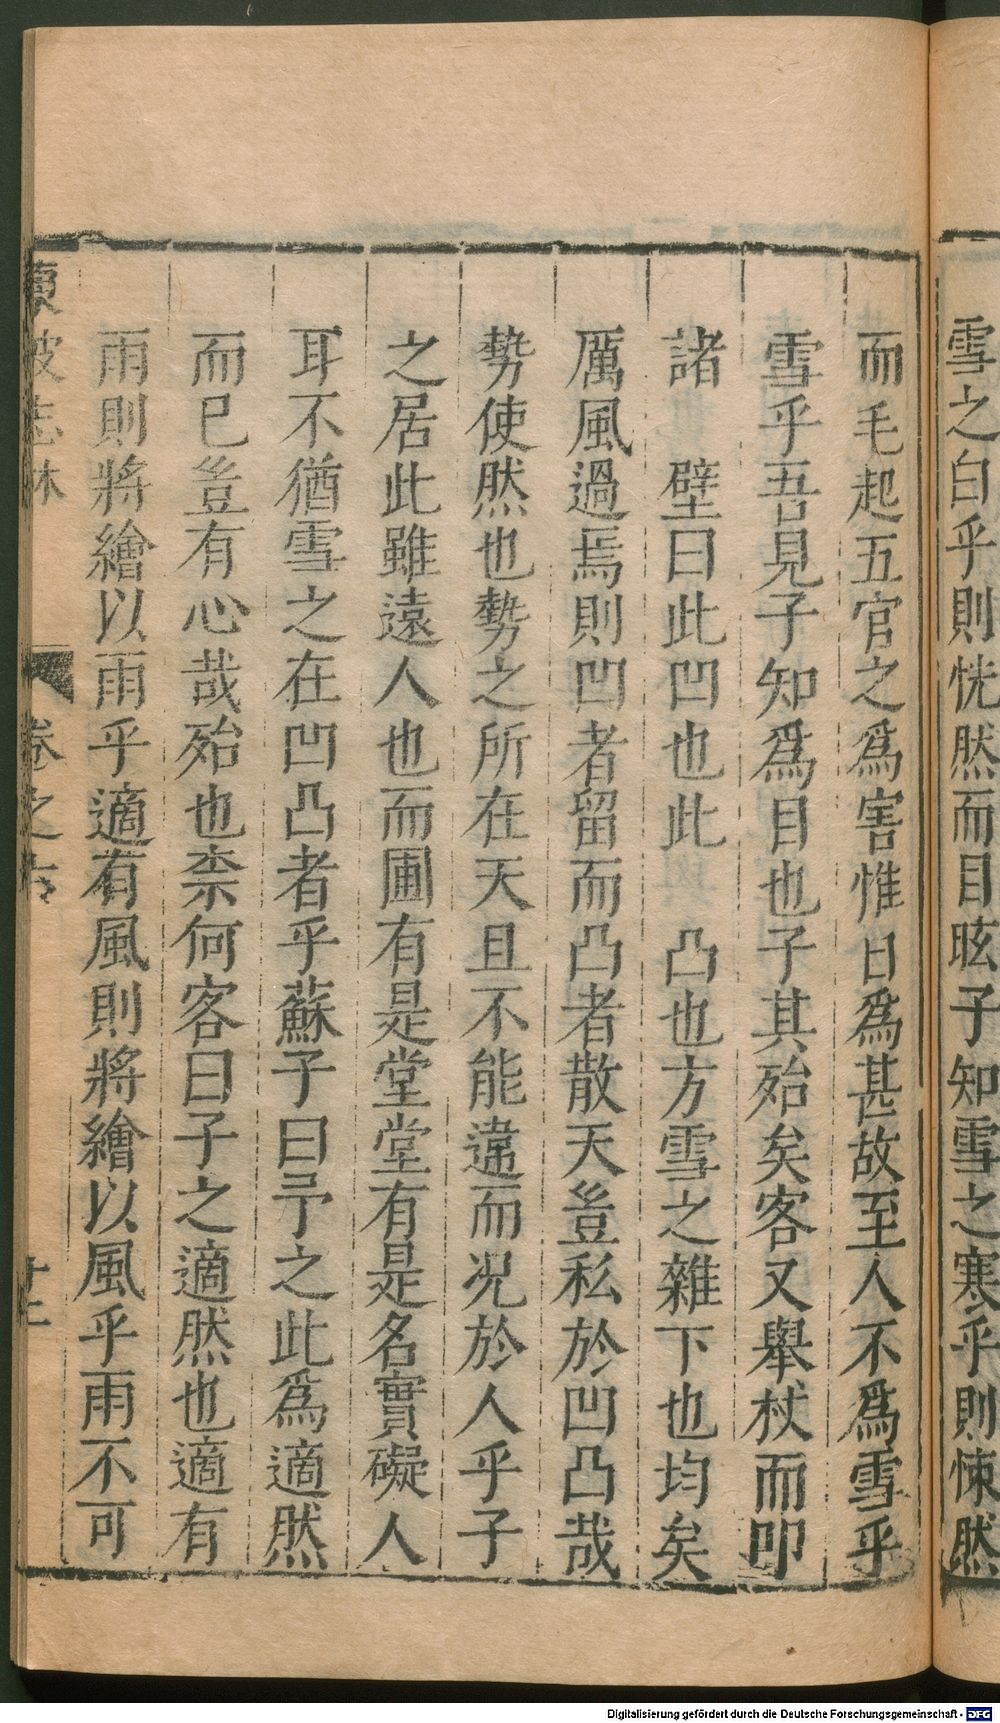 雪之白乎則恍然而目眩子知雪之寒乎則悚然
而毛起五官之爲害惟目爲甚故至人不爲雪乎
雪乎吾見子知爲目也子其殆矣客又舉杖而叩
諸壁曰此凹也此凸也方雪之雜下也均矣
厲風過焉則凹者留而凸者散天豈私於凹凸哉
勢使然也勢之所在天且不能違而况於人乎子
之居此雖遠人也而圃有是堂堂有是名實礙人
耳不猶雪之在凹凸者乎蘇子曰予之此爲適然
而已豈有心哉殆也柰何客曰子之適然也適有
雨則將繪以雨乎適有風則將繪以風乎雨不可
東坡志林 卷之六
Digitalisierung gefördert durch die Deutsche Forschungsgemeinschaft - DFG